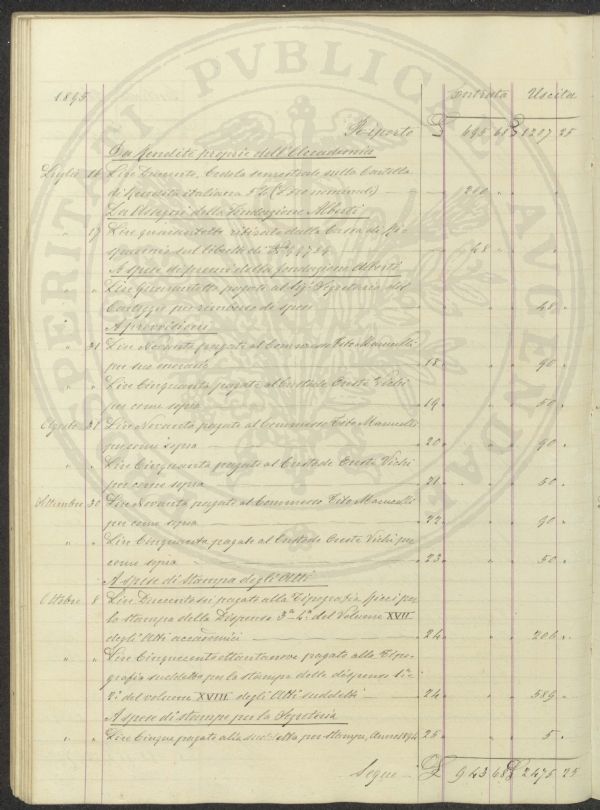 1895
Entrata Uscita
Riporto £ 695 68 £ 1207 25
Da Rendite proprie dell'Accademia
Luglio 16 Lire Duecento, Cedola semestrale sulla Cartella
di Rendita italiana 5% nominali) 200 " "
Da Assegni della Fondazione Alberti
" 19 Lire quarantotto ritirate dalla Cassa di Ri
sparmio sul libretto di 48 " "
A spese di premi della fondazione Alberti
" " Lire quarantotto pagate al Sig. Segretario del
Carteggio per rimborso di spese 48 "
A provvisioni
" 31 Lire Novanta pagate al Commesso Tito Marucelli
per suo onorario 18 " 90 "
" " Lire Cinquanta pagate al Custode Oreste Vichi
per come sopra 19 " 50 "
Agosto 31 Lire Novanta pagate al Commesso Tito Marucelli
per come sopra 20 " 90 "
" " Lire Cinquanta pagate al Custode Oreste Vichi
per come sopra 21 " 50 "
Settembre 30 Lire Novanta pagate al Commesso Tito Marucelli
per come sopra 22 " 90 "
" " Lire Cinquanta pagate al Custode Oreste Vichi per
come sopra 23 " 50 "
A spese di Stampa degli Atti
Ottobre 8 Lire Duecentosei pagate alla Tipografia Ricci per
la stampa della Dispensa 3ª 4ª del Volume XVII
degli Atti accademici 24 " 206 "
" " Lire Cinquecento ottantanove pagate alla Tipo-
grafia suddetta per la stampa delle dispense 1ª e
2ª del volume XVIII degli Atti suddetti 24 " 589 "
A spese di stampe per la Segreteria
" " Lire Cinque pagate alla suddetta per stampe, Anno 1894 25 " 5 "
Segue £ 943 68 £ 2475 25
PROSPERITATI PVBLICAE AVGENDAE